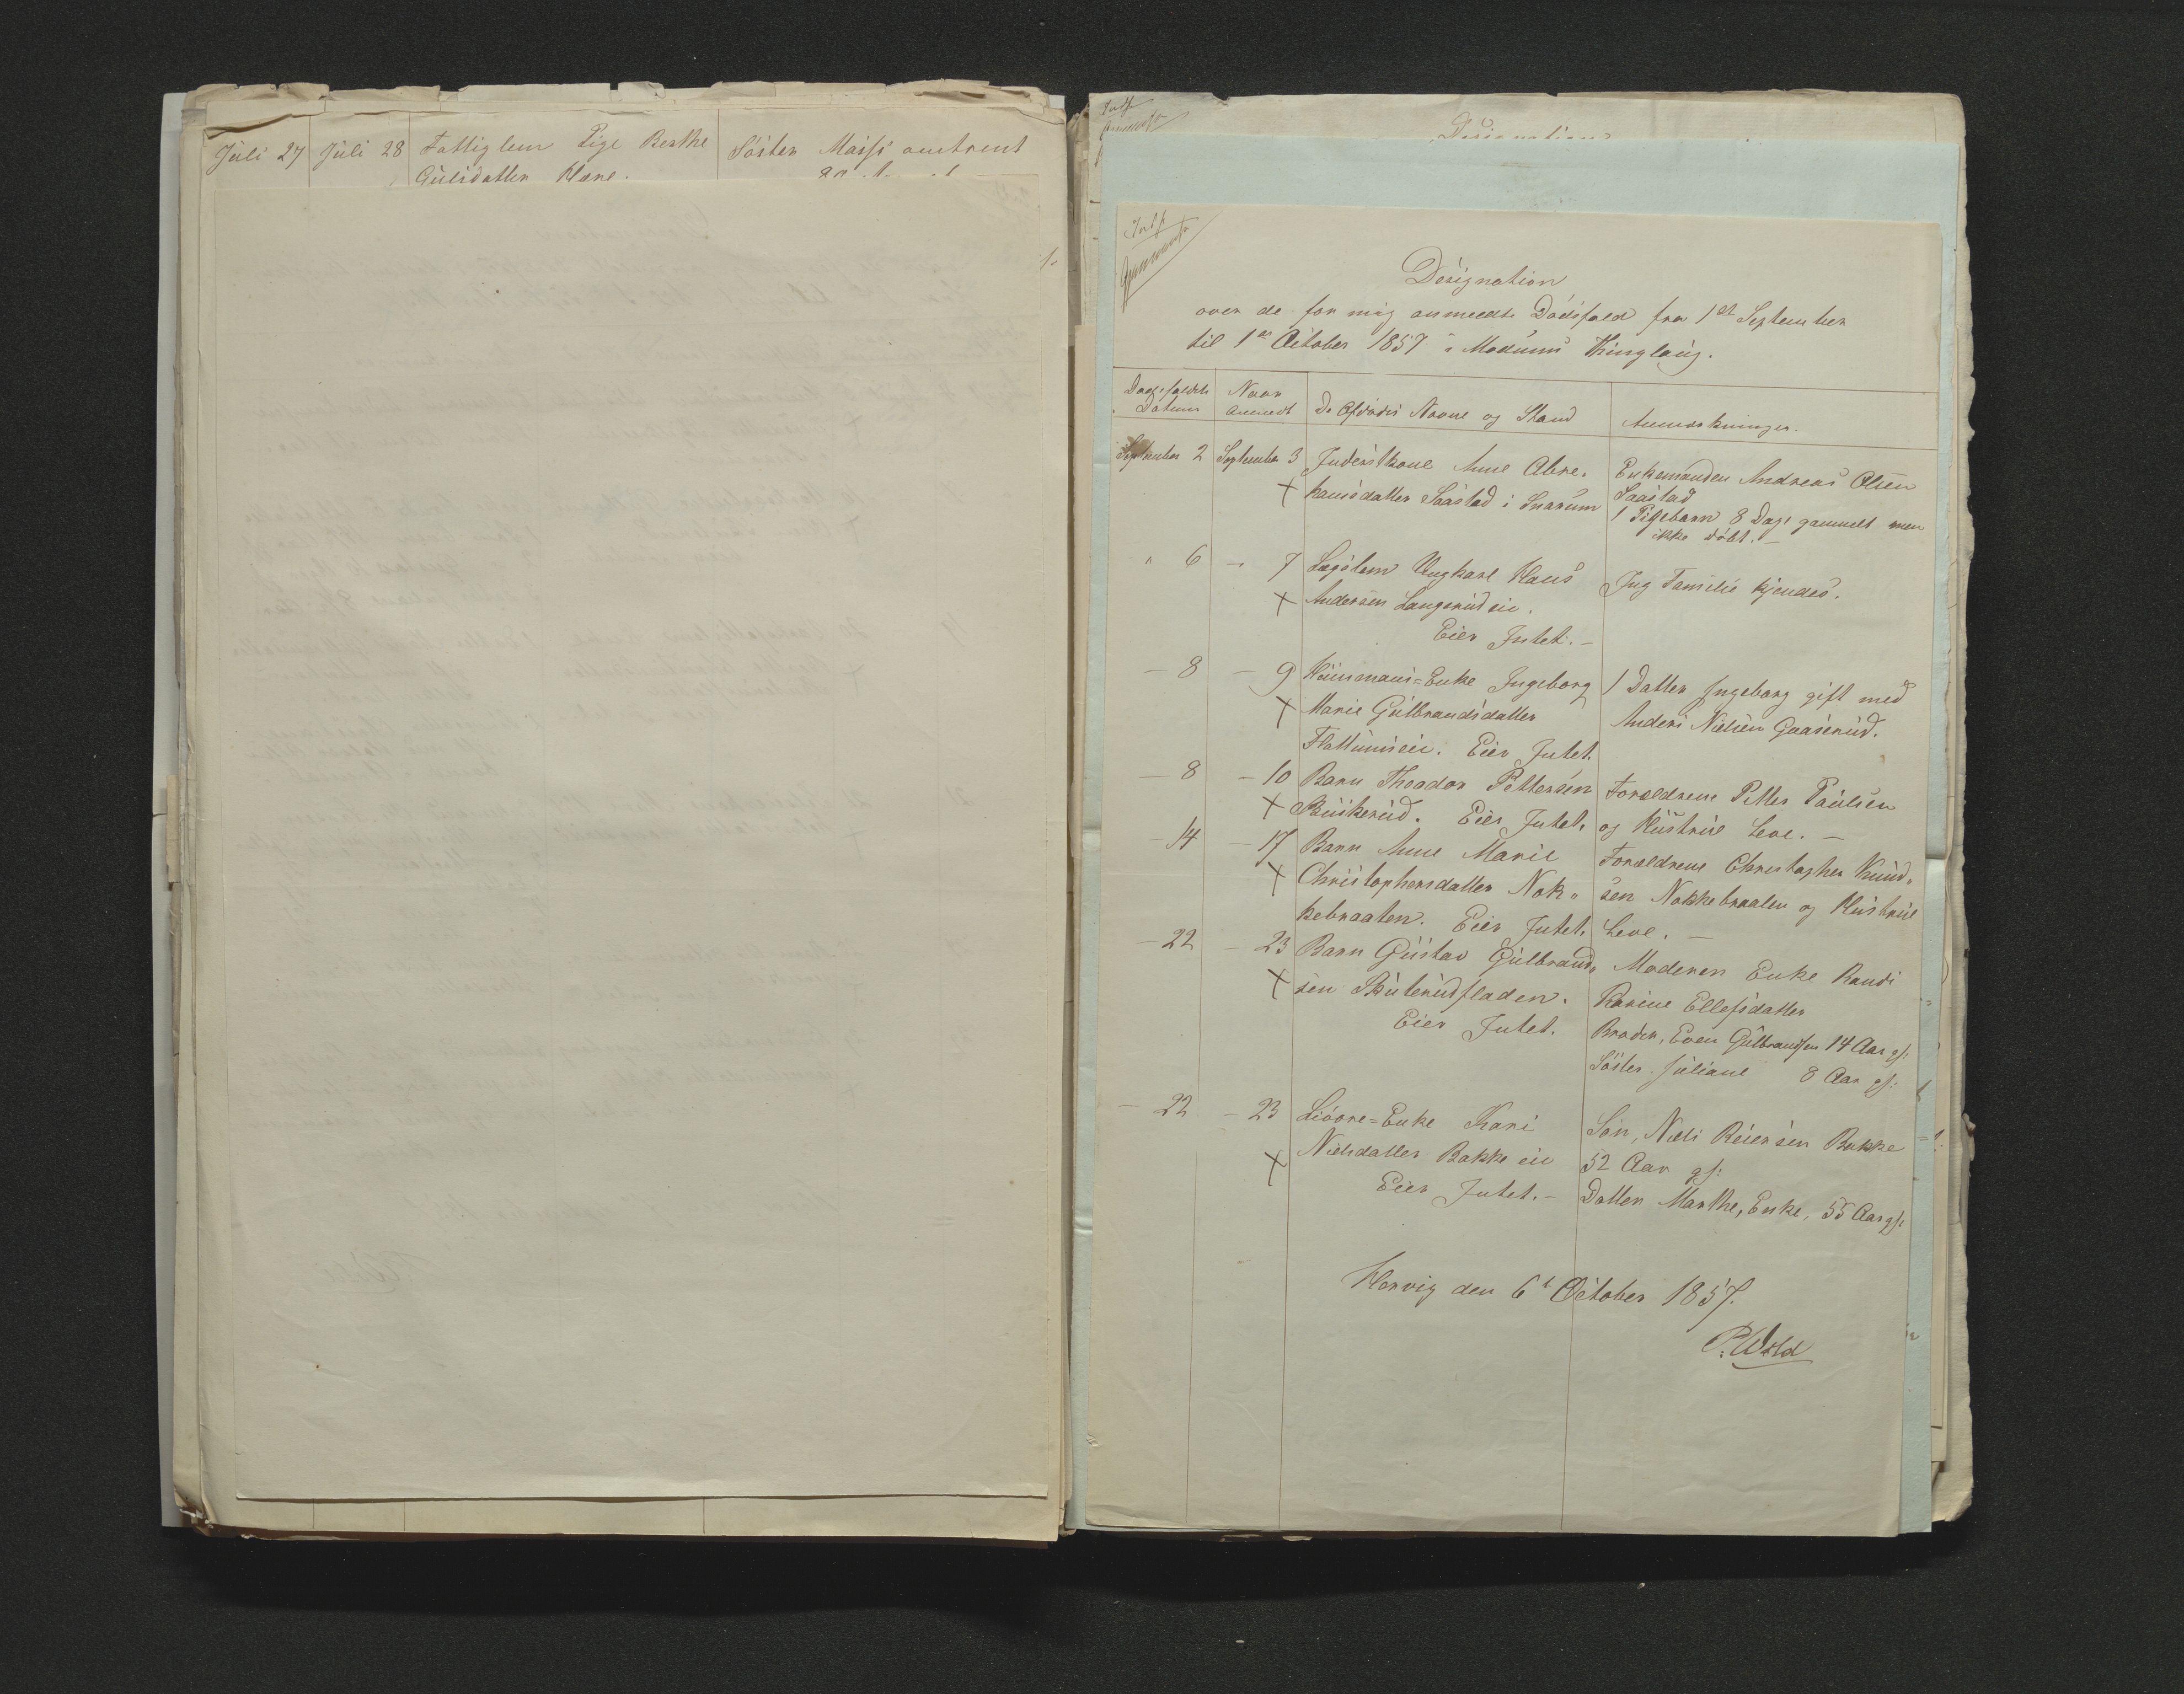 Juli 27 Juli 28 Fattiglem Pige Berthe Søster Maisi omtrent
Gulsdatter Hære.
Designation
Designation
over de for mig anmeldte Dødsfald fra 1ste September
til 1ste October 1857 i Modums Thinglaug.
Dødsfaldets Datum
Naar anmeldt
De Afdødes Navne og Stand
Anmærkninger.
September 2 September 3 Inderstkone Anne Abra-
hamsdatter Saastad i Snarum
Enkemanden Andreas Olsen
Saastad
1 Pigebarn 8 Dage gammelt men
ikke døbt. —
" 6 — 7 Lægslem Ungkarl Hans
Andersen Langerud eie.
Eier Intet. —
Ing Familie kjendes.
— 8 — 9 Huusmans-Enke Ingeborg
Marie Gulbrandsdatter
Flattumseie. Eier Intet.
1 Datter Ingeborg gift med
Anders Nielsen Gaaserud.
— 8 — 10 Barn Theodor Pettersen
Buskerud. Eier Intet.
Forældrene Petter Paulsen
og Hustrue Leve. —
— 14 — 17 Barn Anne Marie
Christophersdatter Nok-
kebraaten. Eier Intet.
Forældrene Christopher Knud-
sen Nokkebraaten og Hustrue
Leve. —
— 22 — 23 Barn Gustav Gulbrand-
sen Skuterudfladen.
Eier Intet.
Moderen Enke Randi
Karine Ellefsdatter
Broder, Even Gulbrandsen 14 Aar gl:
Søster Juliane 8 Aar gl:
— 22 — 23 Liøore-Enke Kari
Nielsdatter Bakke eie
Eier Intet. —
Søn, Niels Reiersen Bakke
52 Aar gl:
Datter Marthe, Enke, 55 Aar gl:
Hervig den 6t October 1857.
P. Wold